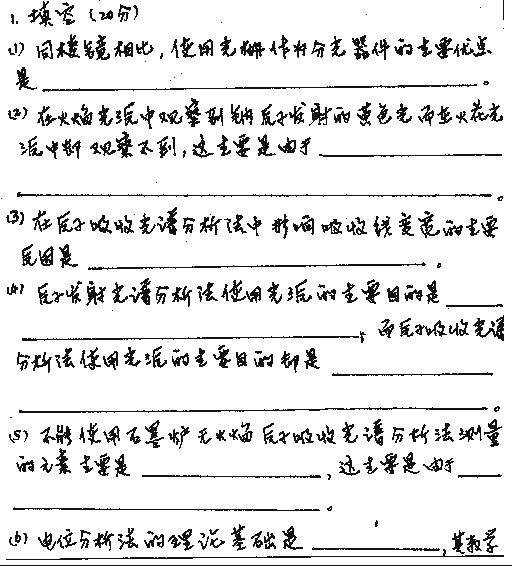 1. 填空 (20分)
(1) 同棱镜相比, 使用光栅作为分光器件的主要优点
是 ______ 。
(2) 在火焰光源中观察到钠原子发射的黄色光而在火花光
源中却观察不到, 这主要是由于 ______
______ 。
(3) 在原子吸收光谱分析法中影响吸收线变宽的主要
原因是 ______ 。
(4) 原子发射光谱分析法使用光源的主要目的是 ______
______ ; 而原子吸收光谱
分析法使用光源的主要目的却是 ______
______ 。
(5) 不能使用石墨炉无火焰原子吸收光谱分析法测量
的元素主要是 ______ , 这主要是由于 ______
______ 。
(6) 电位分析法的理论基础是 ______ , 其数学